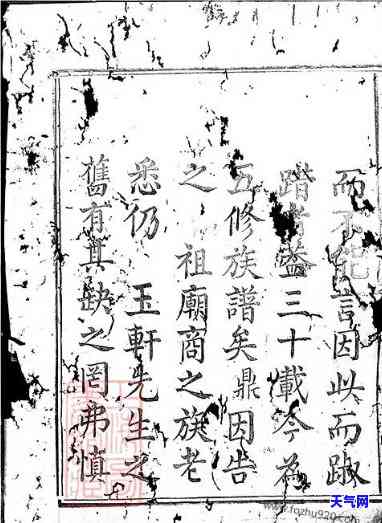 而不能言因此而踧
踖者益三十載今為
五修族譜矣鼎因告
之 祖廟商之族老
悉仍 玉軒先生之
舊有其缺之罔弗慎
天气网